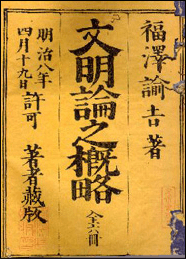 福澤諭吉著
文明論之概略 全六冊
明治八年
四月十九日許可
著者藏版